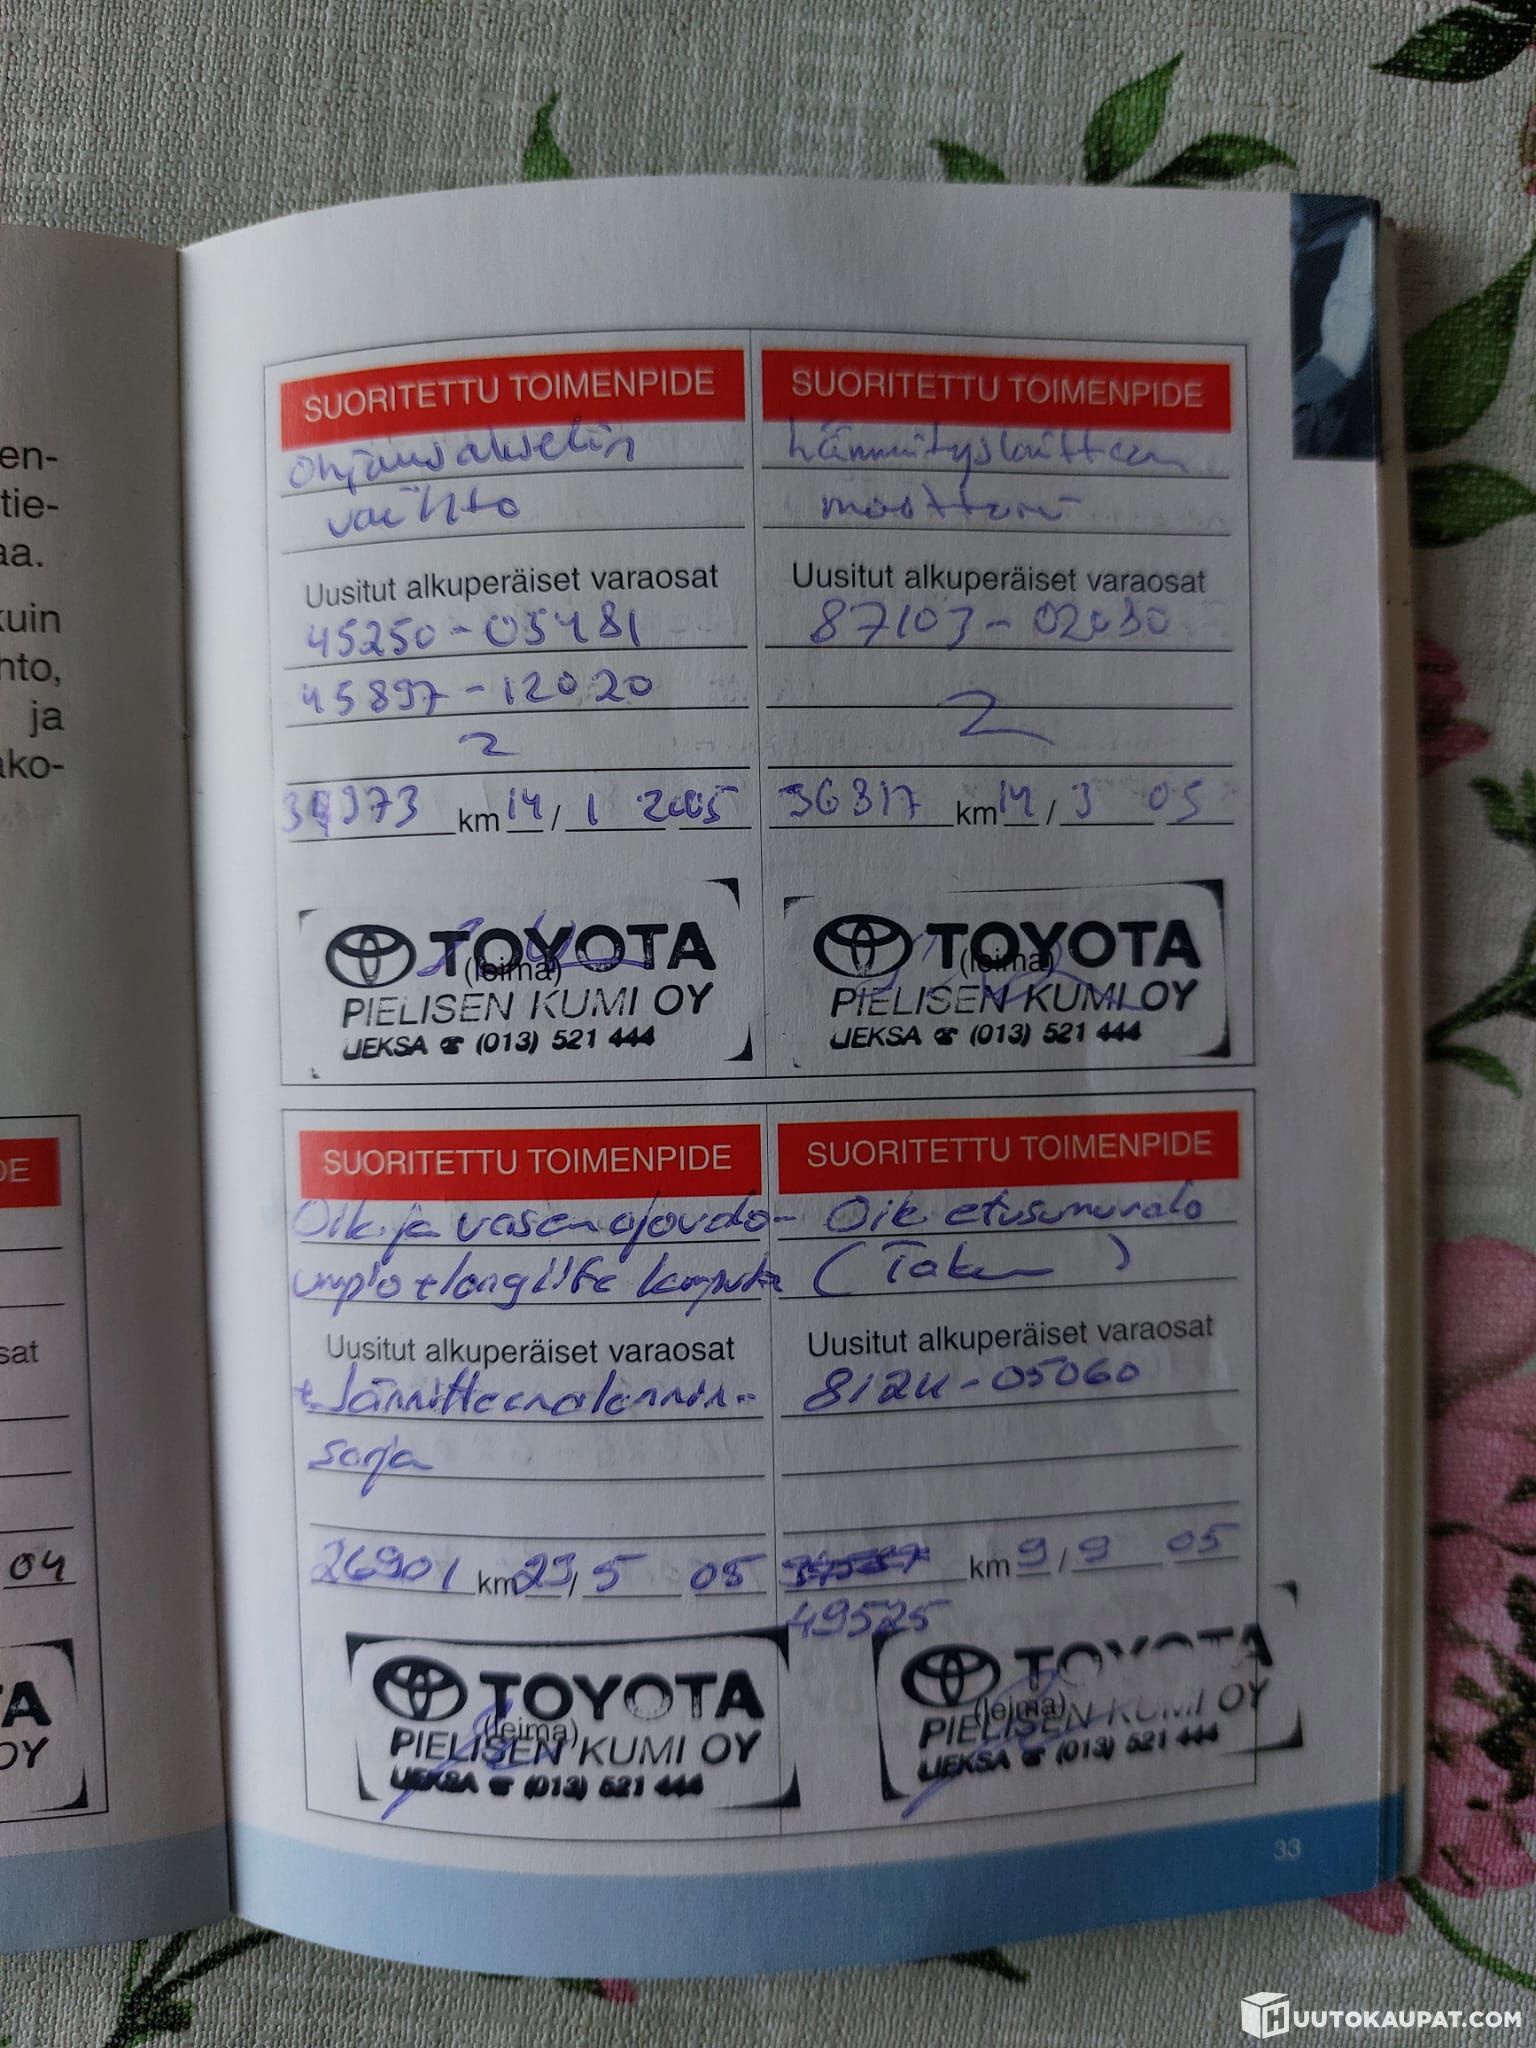 en-
tie-
aa.
kuin
hto,
ja
ako-
DE
sat
04
TA
OY
SUORITETTU TOIMENPIDE
ohjausakselin
vaihto
Uusitut alkuperäiset varaosat
45250-05481
45897-12020
2
34973 km 14 / 1 2005
TOYOTA
(leima)
PIELISEN KUMI OY
LIEKSA ☎ (013) 521 444
SUORITETTU TOIMENPIDE
moottori
Uusitut alkuperäiset varaosat
87103-02030
2
36317 km 14 / 3 05
TOYOTA
(leima)
PIELISEN KUMI OY
LIEKSA ☎ (013) 521 444
SUORITETTU TOIMENPIDE
Oik. ja vasen ajovalo-
umpio + longlife
Uusitut alkuperäiset varaosat
+ Jännitteenalennin-
sarja
26901 km 23 / 5 05
TOYOTA
(leima)
PIELISEN KUMI OY
LIEKSA ☎ (013) 521 444
SUORITETTU TOIMENPIDE
Oik. etusumuvalo
(Takuu)
Uusitut alkuperäiset varaosat
km 9 / 9 05
49525
TOYOTA
(leima)
PIELISEN KUMI OY
LIEKSA ☎ (013) 521 444
33
HUUTOKAUPAT.COM